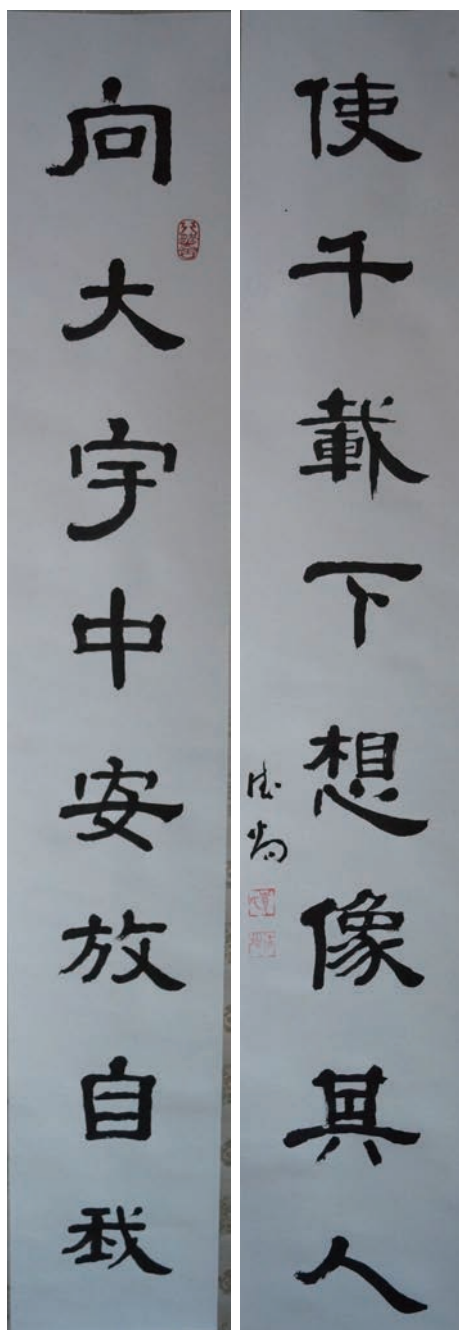 使千載下想像其人
向大宇中安放自我